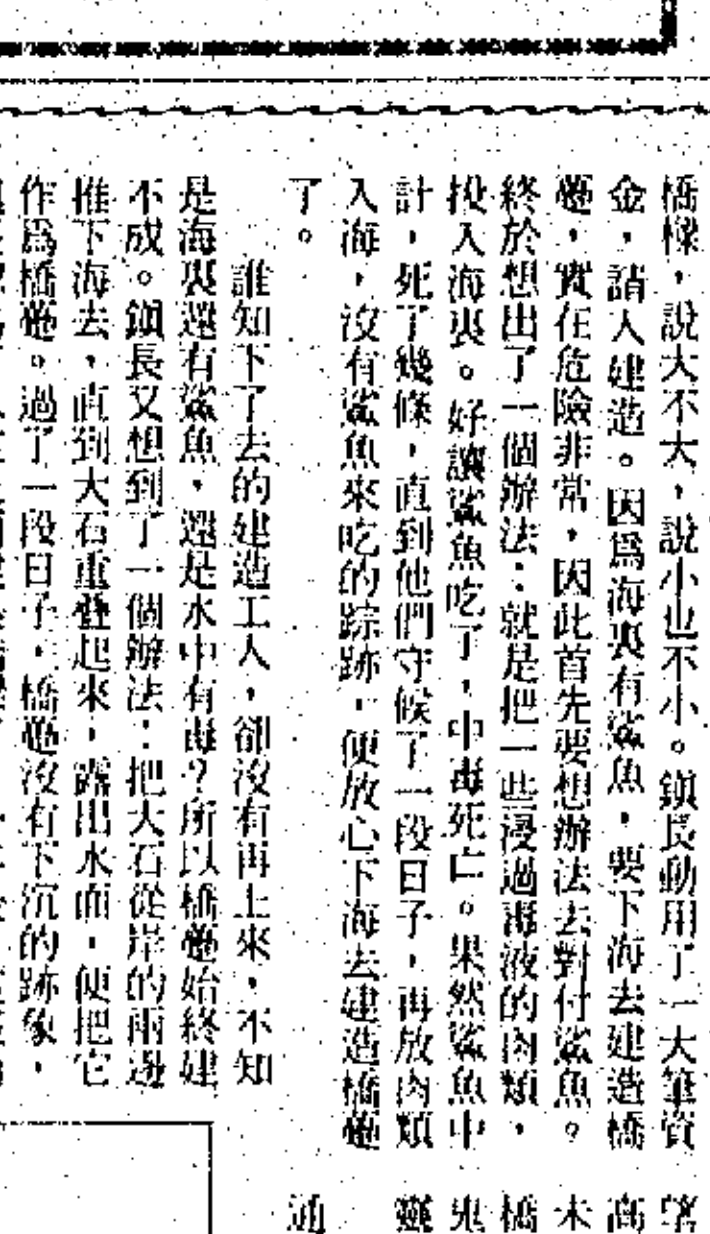 橋樑，說大不大，說小也不小。鎮長動用了一大筆資
金，請人建造。因爲海裏有鯊魚，要下海去建造橋
躉，實在危險非常，因此首先要想辦法去對付鯊魚。
終於想出了一個辦法：就是把一些浸過毒液的肉類，
投入海裏。好讓鯊魚吃了，中毒死亡。果然鯊魚中
計，死了幾條，直到他們守候了一段日子，再放肉類
入海，沒有鯊魚來吃的踪跡，便放心下海去建造橋躉
了。
誰知下了去的建造工人，卻沒有再上來，不知
是海裏還有鯊魚，還是水中有毒？所以橋躉始終建
不成。鎮長又想到了一個辦法：把大石從岸的兩邊
推下海去，直到大石重疊起來，露出水面，便把它
作爲橋躉。過了一段日子，橋躉沒有下沉的跡象，
高
未
橋
鬼
靈
通